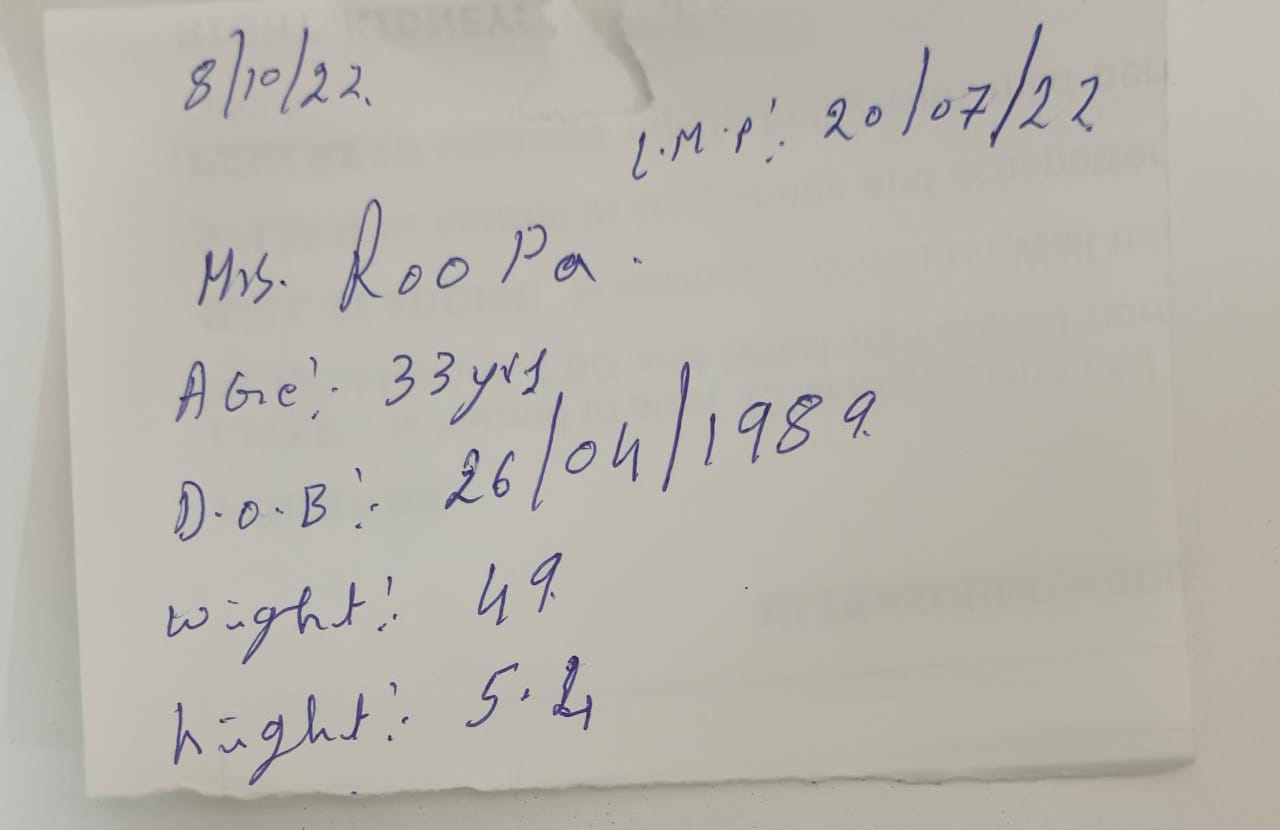 8/10/22.
L.M.P:. 20/07/22
Mrs. RooPa.
AGe:- 33 yrs
D.O.B:- 26/04/1989.
Weight:. 49.
height:.